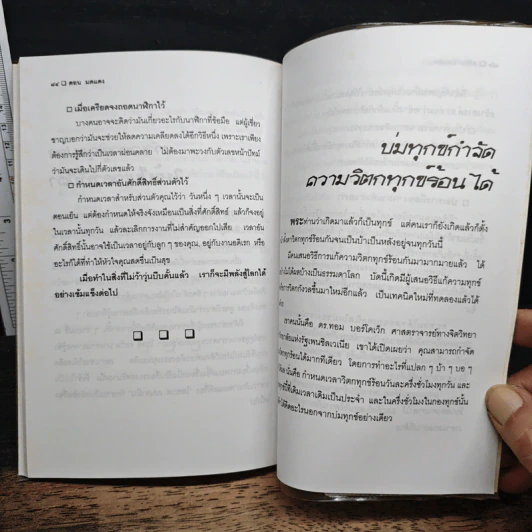 ๔๔ ❑ ดอน มดแดง
❑ เมื่อเครียดจงถอดนาฬิกาไว้
บางคนอาจจะคิดว่ามันเกี่ยวอะไรกับนาฬิกาที่ข้อมือ แต่ผู้เชี่ยว
ชาญบอกว่ามันจะช่วยให้ลดความเคลียดลงได้อีกวิธีหนึ่ง เพราะเราเพียง
ต้องการรู้สึกว่าเป็นเวลาผ่อนคลาย ไม่ต้องมาพะวงกับตัวเลขหน้าปัทม์
ว่ามันจะเดินไปกี่ตัวเลขแล้ว
❑ กำหนดเวลาอันศักดิ์สิทธิ์ส่วนตัวไว้
กำหนดเวลาสำหรับส่วนตัวคุณไว้ว่า วันหนึ่ง ๆ เวลานั้นจะเป็น
ตอนเย็น แต่ต้องกำหนดให้จริงจังเหมือนเป็นสิ่งที่ศักดิ์สิทธิ์ แล้วก็จงอยู่
ในเวลานั้นทุกวัน แล้วละเลิกการงานที่ไม่สำคัญออกไปเสีย เวลาอัน
ศักดิ์สิทธิ์นั้นอาจใช้เป็นเวลาอยู่กับลูก ๆ ของคุณ, อยู่กับงานอดิเรก หรือ
อะไรก็ได้ที่ทำให้หัวใจคุณสดชื่นเป็นสุข
เมื่อทำในสิ่งที่ไม่ว้าวุ่นบีบคั้นแล้ว เราก็จะมีพลังสู้โลกได้
อย่างเข้มแข็งต่อไป
❑ ❑ ❑
บ่มทุกข์กำจัด
ความวิตกทุกข์ร้อนได้
พระท่านว่าเกิดมาแล้วก็เป็นทุกข์ แต่คนเราก็ยังเกิดแล้วก็ตั้ง
หาวิตกทุกข์ร้อนกันจนเป็นบ้าเป็นหลังอยู่จนทุกวันนี้
มีคนเสนอวิธีการแก้ความวิตกทุกข์ร้อนกันมามากมายแล้ว ได้
ไม่ได้ผลบ้างเป็นธรรมดาโลก บัดนี้เกิดมีผู้เสนอวิธีแก้ความทุกข์
วิตกกังวลขึ้นมาใหม่อีกแล้ว เป็นเทคนิคใหม่ที่ทดลองแล้วได้
คนนั้นคือ ดร.ทอม บอร์โคเว็ก ศาสตราจารย์ทางจิตวิทยา
แห่งรัฐเพนซิลเวเนีย เขาได้เปิดเผยว่า คุณสามารถกำจัด
ทุกข์ร้อนได้มากทีเดียว โดยการทำอะไรที่แปลก ๆ บ้า ๆ บอ ๆ
นั่นคือ กำหนดเวลาวิตกทุกข์ร้อนวันละครึ่งชั่วโมงทุกวัน และ
ที่เดิมเวลาเดิมเป็นประจำ และในครึ่งชั่วโมงในกองทุกข์นั้น
คิดอะไรนอกจากบ่มทุกข์อย่างเดียว